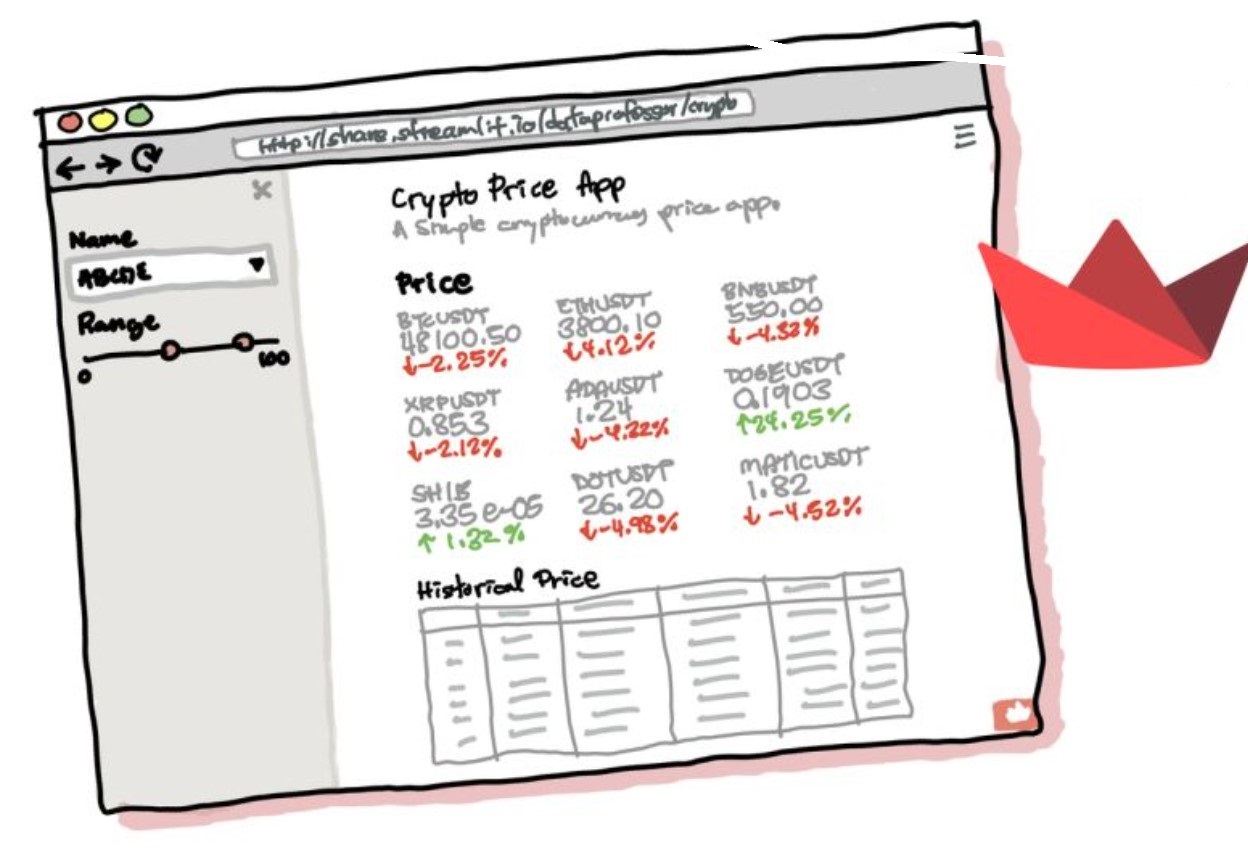 http://share.streamlit.io/dataprofessor/crypto
Crypto Price App
A Simple cryptocurrency price app.
Name
ABCDE
Range
0
100
Price
BTCUSDT
48100.50
↓-2.25%
ETHUSDT
3800.10
↓4.12%
BNBUSDT
550.00
↓-4.33%
XRPUSDT
0.853
↓-2.12%
ADAUSDT
1.24
↓-4.32%
DOGEUSDT
0.1903
↑24.25%
SHIB
3.35e-05
↑1.32%
DOTUSDT
26.20
↓-4.98%
MATICUSDT
1.82
↓-4.52%
Historical Price